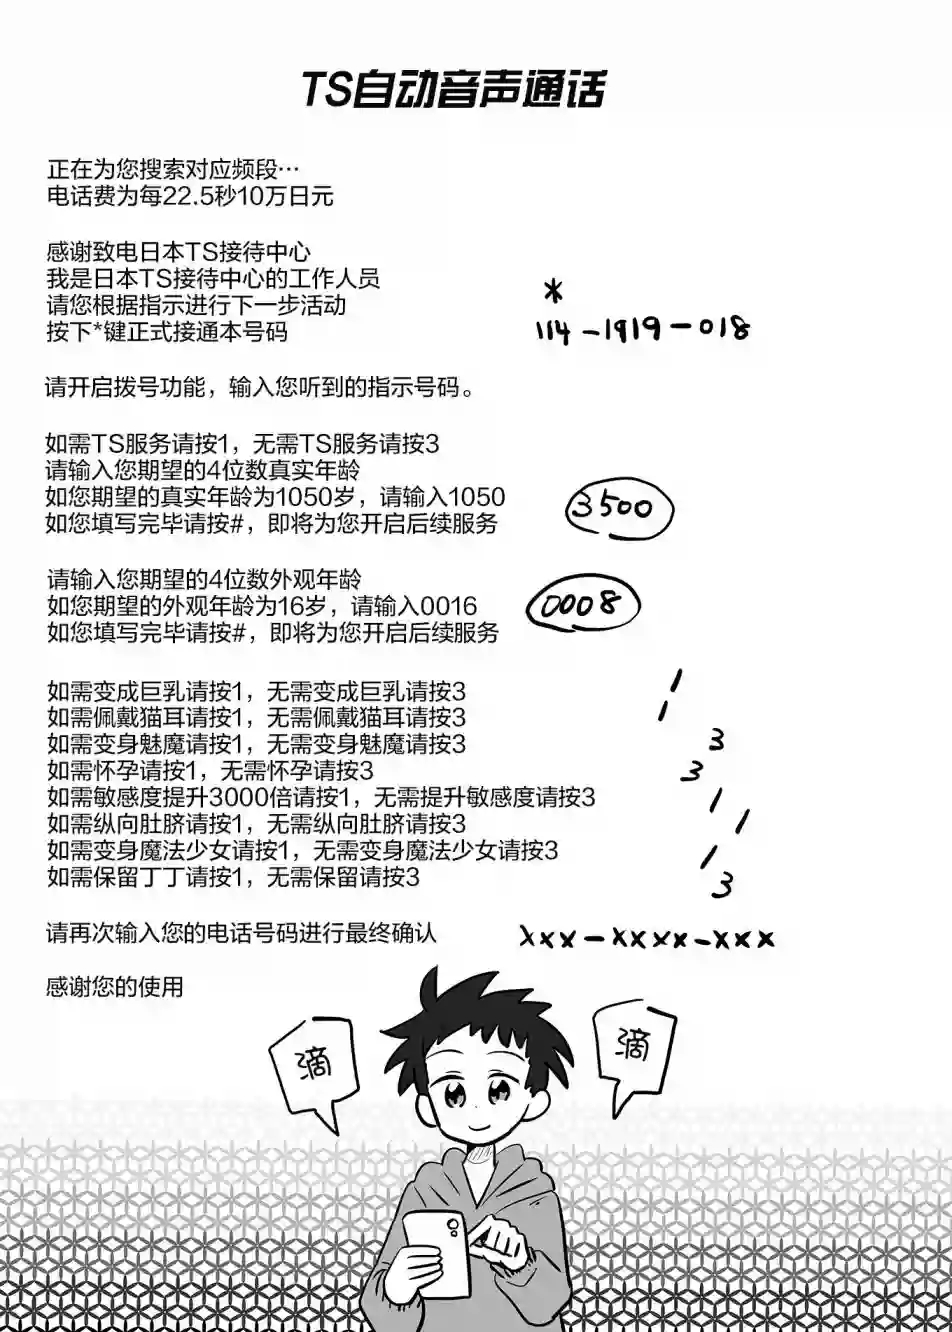 TS自动音声通话
正在为您搜索对应频段…
电话费为每22.5秒10万日元
感谢致电日本TS接待中心
我是日本TS接待中心的工作人员
请您根据指示进行下一步活动
按下*键正式接通本号码
*
114-1919-018
请开启拨号功能，输入您听到的指示号码。
如需TS服务请按1，无需TS服务请按3
请输入您期望的4位数真实年龄
如您期望的真实年龄为1050岁，请输入1050
如您填写完毕请按#，即将为您开启后续服务
3500
请输入您期望的4位数外观年龄
如您期望的外观年龄为16岁，请输入0016
如您填写完毕请按#，即将为您开启后续服务
0008
如需变成巨乳请按1，无需变成巨乳请按3
1
如需佩戴猫耳请按1，无需佩戴猫耳请按3
1
如需变身魅魔请按1，无需变身魅魔请按3
3
如需怀孕请按1，无需怀孕请按3
3
如需敏感度提升3000倍请按1，无需提升敏感度请按3
1
如需纵向肚脐请按1，无需纵向肚脐请按3
1
如需变身魔法少女请按1，无需变身魔法少女请按3
1
如需保留丁丁请按1，无需保留请按3
3
请再次输入您的电话号码进行最终确认
xxx-xxxx-xxx
感谢您的使用
滴
滴